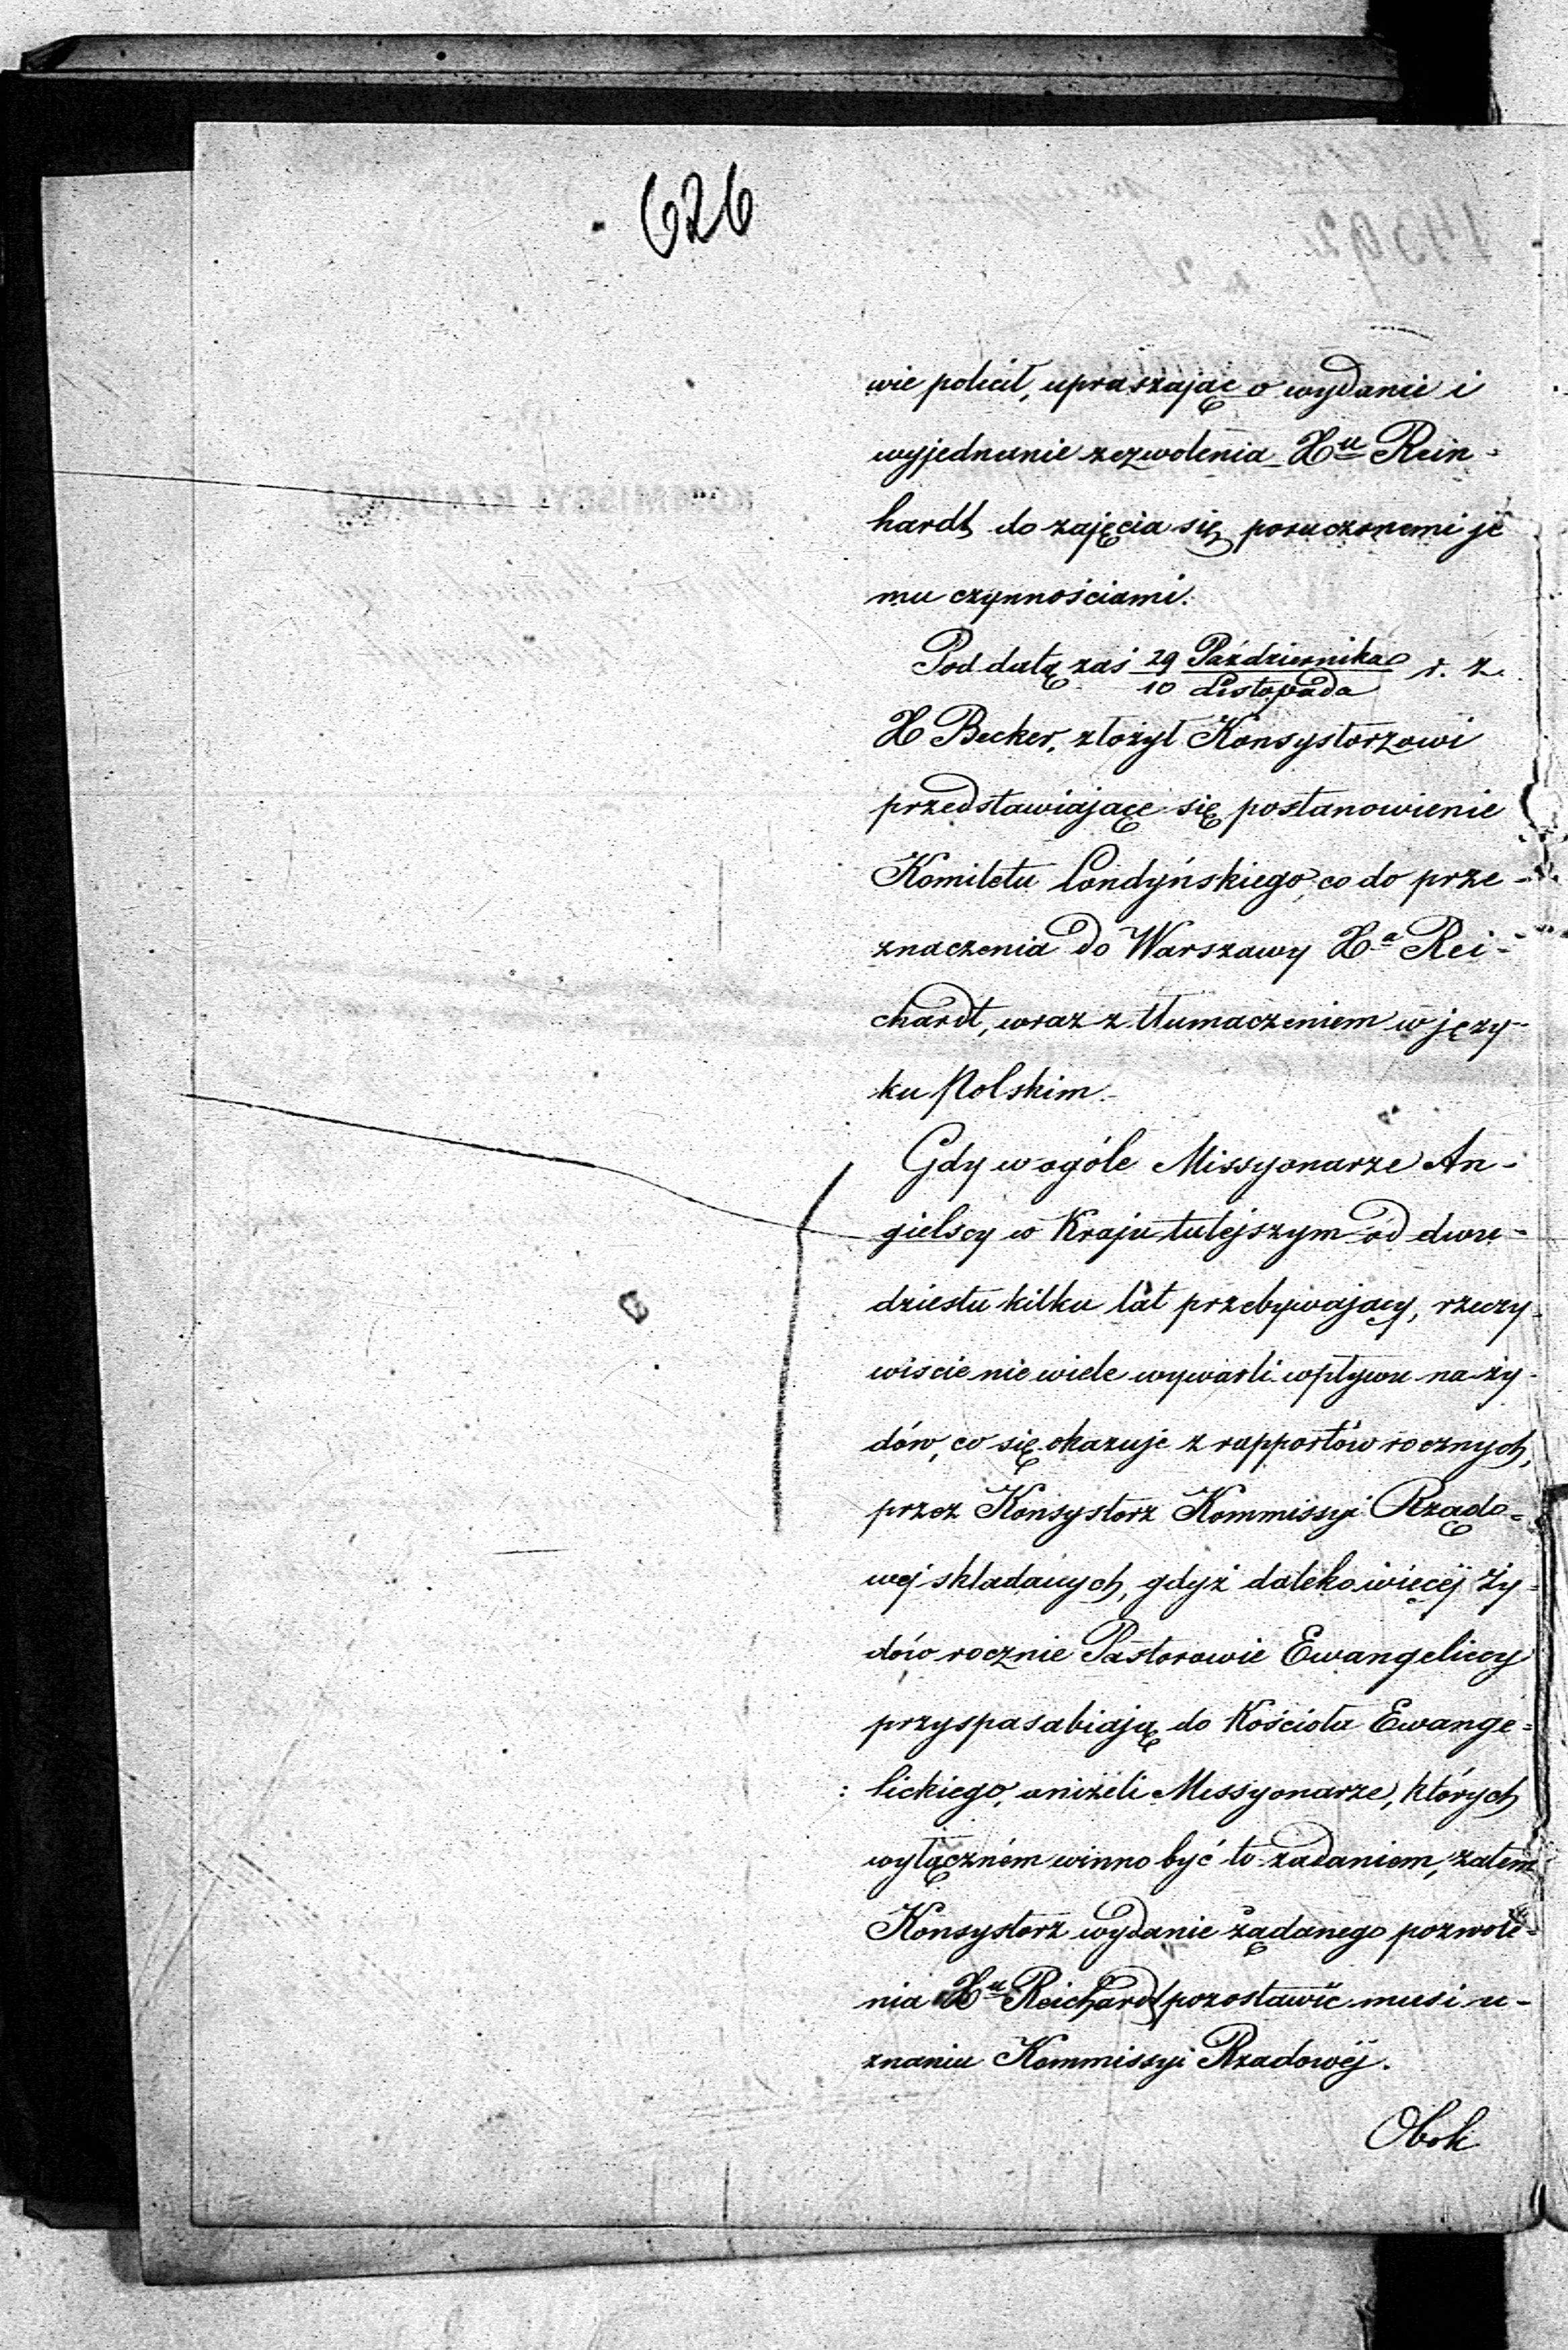 626
wie polecił, upraszając o wydanie i
wyjednanie zezwolenia Xu Rein-
hardt do zajęcia się poruczonemi je
mu czynnościami.
Pod datą zaś 29 Października / 10 Listopada r. z.
X Becker, złożył Konsystorzowi
przedstawiające się postanowienie
Komitetu Londyńskiego, co do prze-
znaczenia do Warszawy Xa Rei-
chardt, wraz z tłumaczeniem w języ-
ku Polskim.
Gdy w ogóle Missyonarze An-
gielscy w Kraju tutejszym od dwu-
dziestu kilku lat przebywający, rzeczy-
wiscie nie wiele wywarli wpływu na ży-
dów, co się okazuje z rapportów rocznych,
przez Konsystorz Kommissyi Rządo-
wej składanych, gdyż daleko więcéj Ży-
dów rocznie Pastorowie Ewangeliccy
przysposabiają do Kościoła Ewange-
lickiego, aniżeli Missyonarze, których
wyłączném winno być to zadaniem, zatem
Konsystorz wydanie żądanego pozwole-
nia Xu Reichardt pozostawić musi u-
znaniu Kommissyi Rządowéj.
Obok